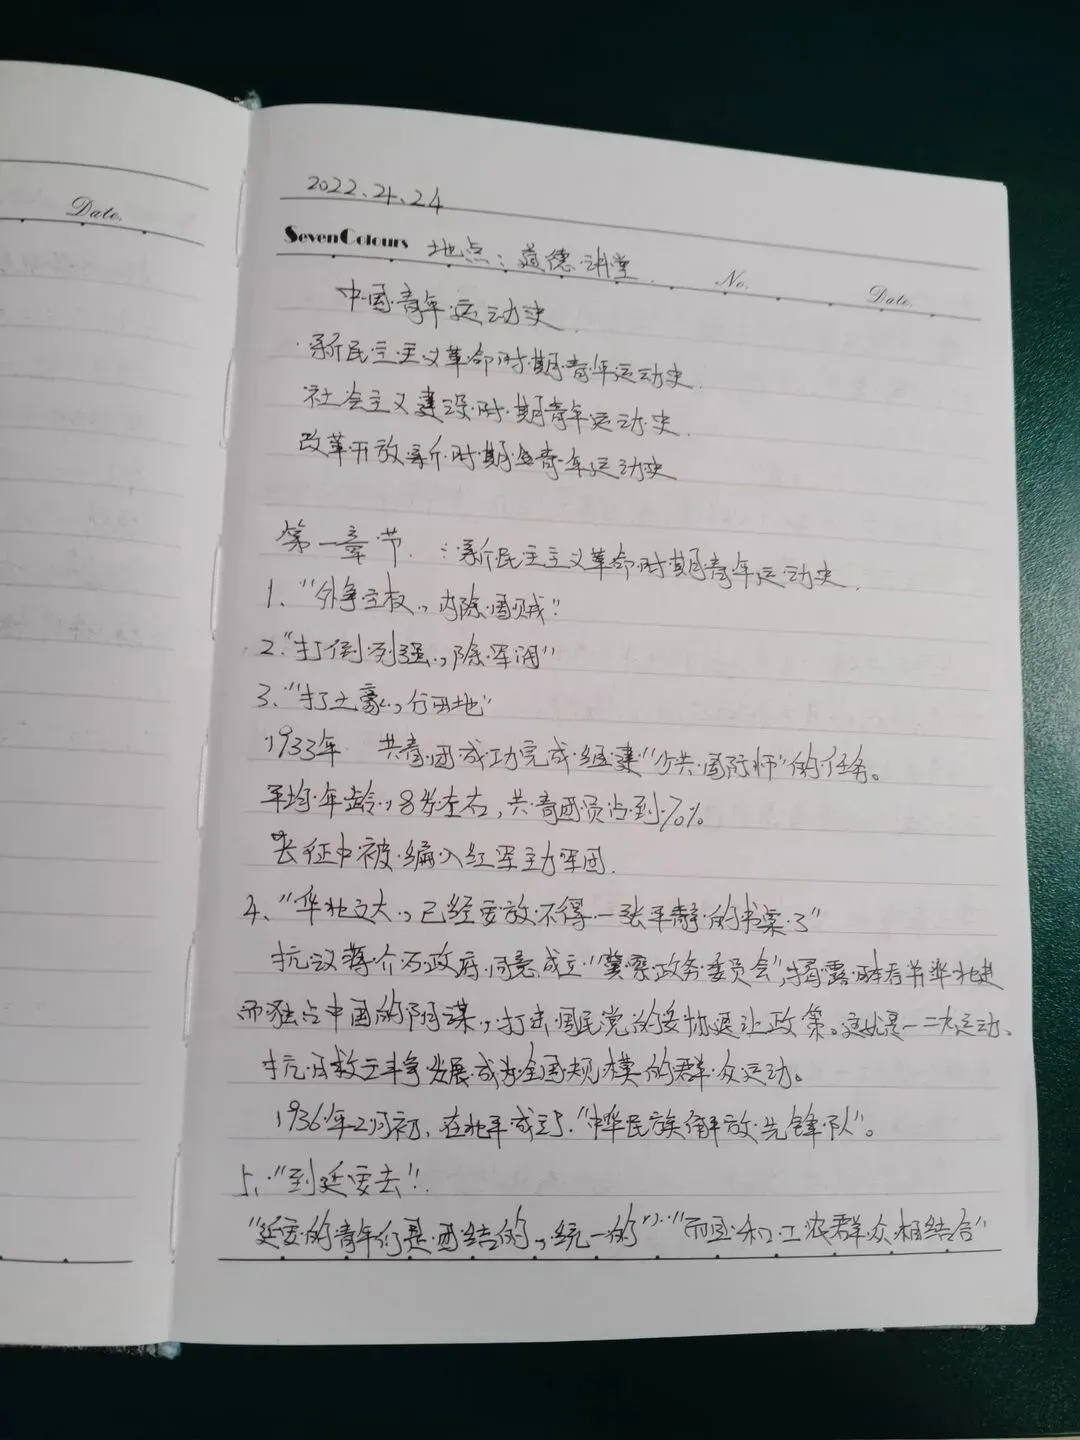 Date.
2022.4.24
SevenColours 地点:道德讲堂 No. Date.
中国青年运动史.
新民主主义革命时期青年运动史.
社会主义建设时期青年运动史.
改革开放新时期青年运动史
第一章节.:新民主主义革命时期青年运动史.
1、"外争主权,内除国贼"
2."打倒列强,除军阀"
3."打土豪,分田地"
1933年 共青团成功完成组建"少共国际师"的任务。
平均年龄18岁左右,共青团员占到70%
长征中被编入红军主力军团.
4、"华北之大,已经安放不得一张平静的书桌了"
抗议蒋介石政府同意成立"冀察政务委员会",揭露日本吞并华北进
而独占中国的阴谋,打击国民党的妥协退让政策。这就是一二九运动、
抗日救亡斗争发展成为全国规模的群众运动。
1936年2月初、在北平成立了"中华民族解放先锋队"。
5、"到延安去"!
"延安的青年们是团结的,统一的""而且和工农群众相结合"